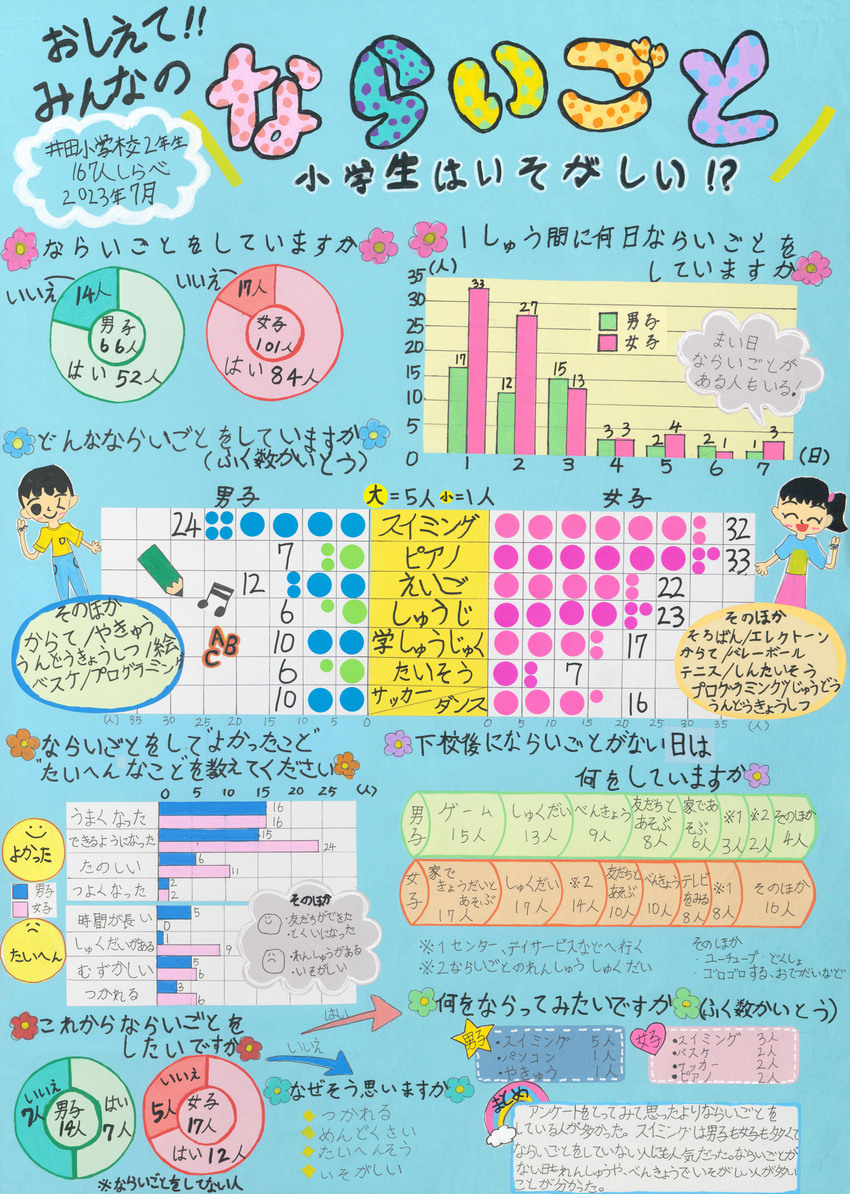 おしえて!!
みんなの
ならいごと
小学生はいそがしい!?
井田小学校2年生
167人しらべ
2023年7月
ならいごとをしていますか
いいえ
14人
男子
66人
はい 52人
いいえ
17人
女子
101人
はい 84人
1しゅう間に何日ならいごとを
していますか
(人)
35
30
25
20
15
10
5
0
男子
女子
17
33
12
27
15
13
3
3
2
4
2
1
1
3
1
2
3
4
5
6
7
(日)
まい日
ならいごとが
ある人もいる!
どんなならいごとをしていますか
(ふく数かいとう)
男子
大=5人 小=1人
女子
24
スイミング
32
7
ピアノ
33
12
えいご
22
6
しゅうじ
23
10
学しゅうじゅく
17
6
たいそう
7
10
サッカー
ダンス
16
ABC
そのほか
からて/やきゅう
うんどうきょうしつ/絵
バスケ/プログラミング
そのほか
そろばん/エレクトーン
からて/バレーボール
テニス/しんたいそう
プログラミング/じゅうどう
うんどうきょうしつ
(人) 35 30 25 20 15 10 5 0
0 5 10 15 20 25 30 35 (人)
ならいごとをしてよかったことと
たいへんなことを教えてください
0 5 10 15 20 25 (人)
よかった
うまくなった
16
16
できるようになった
15
24
たのしい
6
11
つよくなった
2
2
男子
女子
たいへん
時間が長い
5
0
しゅくだいがある
1
9
むずかしい
5
6
つかれる
3
6
そのほか
・友だちができた
・とくいになった
・れんしゅうがある
・いそがしい
下校後にならいごとがない日は
何をしていますか
男子
ゲーム
15人
しゅくだい
13人
べんきょう
9人
友だちと
あそぶ
8人
家であ
そぶ
6人
※1
3人
※2
2人
そのほか
4人
女子
家で
きょうだいと
あそぶ
17人
しゅくだい
17人
※2
14人
友だちと
あそぶ
10人
べんきょう
10人
テレビ
をみる
8人
※1
8人
そのほか
16人
※1 センター、デイサービスなどへ行く
※2 ならいごとのれんしゅう しゅくだい
そのほか
・ユーチューブ・どくしょ
・ゴロゴロする、おてつだいなど
これからならいごとを
したいですか
はい
いいえ
いいえ
7人
男子
14人
はい
7人
いいえ
5人
女子
17人
はい 12人
※ならいごとをしてない人
なぜそう思いますか
つかれる
めんどくさい
たいへんそう
いそがしい
何をならってみたいですか(ふく数かいとう)
男子
・スイミング 5人
・パソコン 1人
・やきゅう 1人
女子
・スイミング 3人
・バスケ 2人
・サッカー 2人
・ピアノ 2人
まとめ
アンケートをとってみて思ったよりならいごとを
している人が多かった。スイミングは男子も女子も多くて
ならいごとをしていない人にも人気だった。ならいごとが
ない日もれんしゅうや、べんきょうでいそがしい人が多い
ことが分かった。